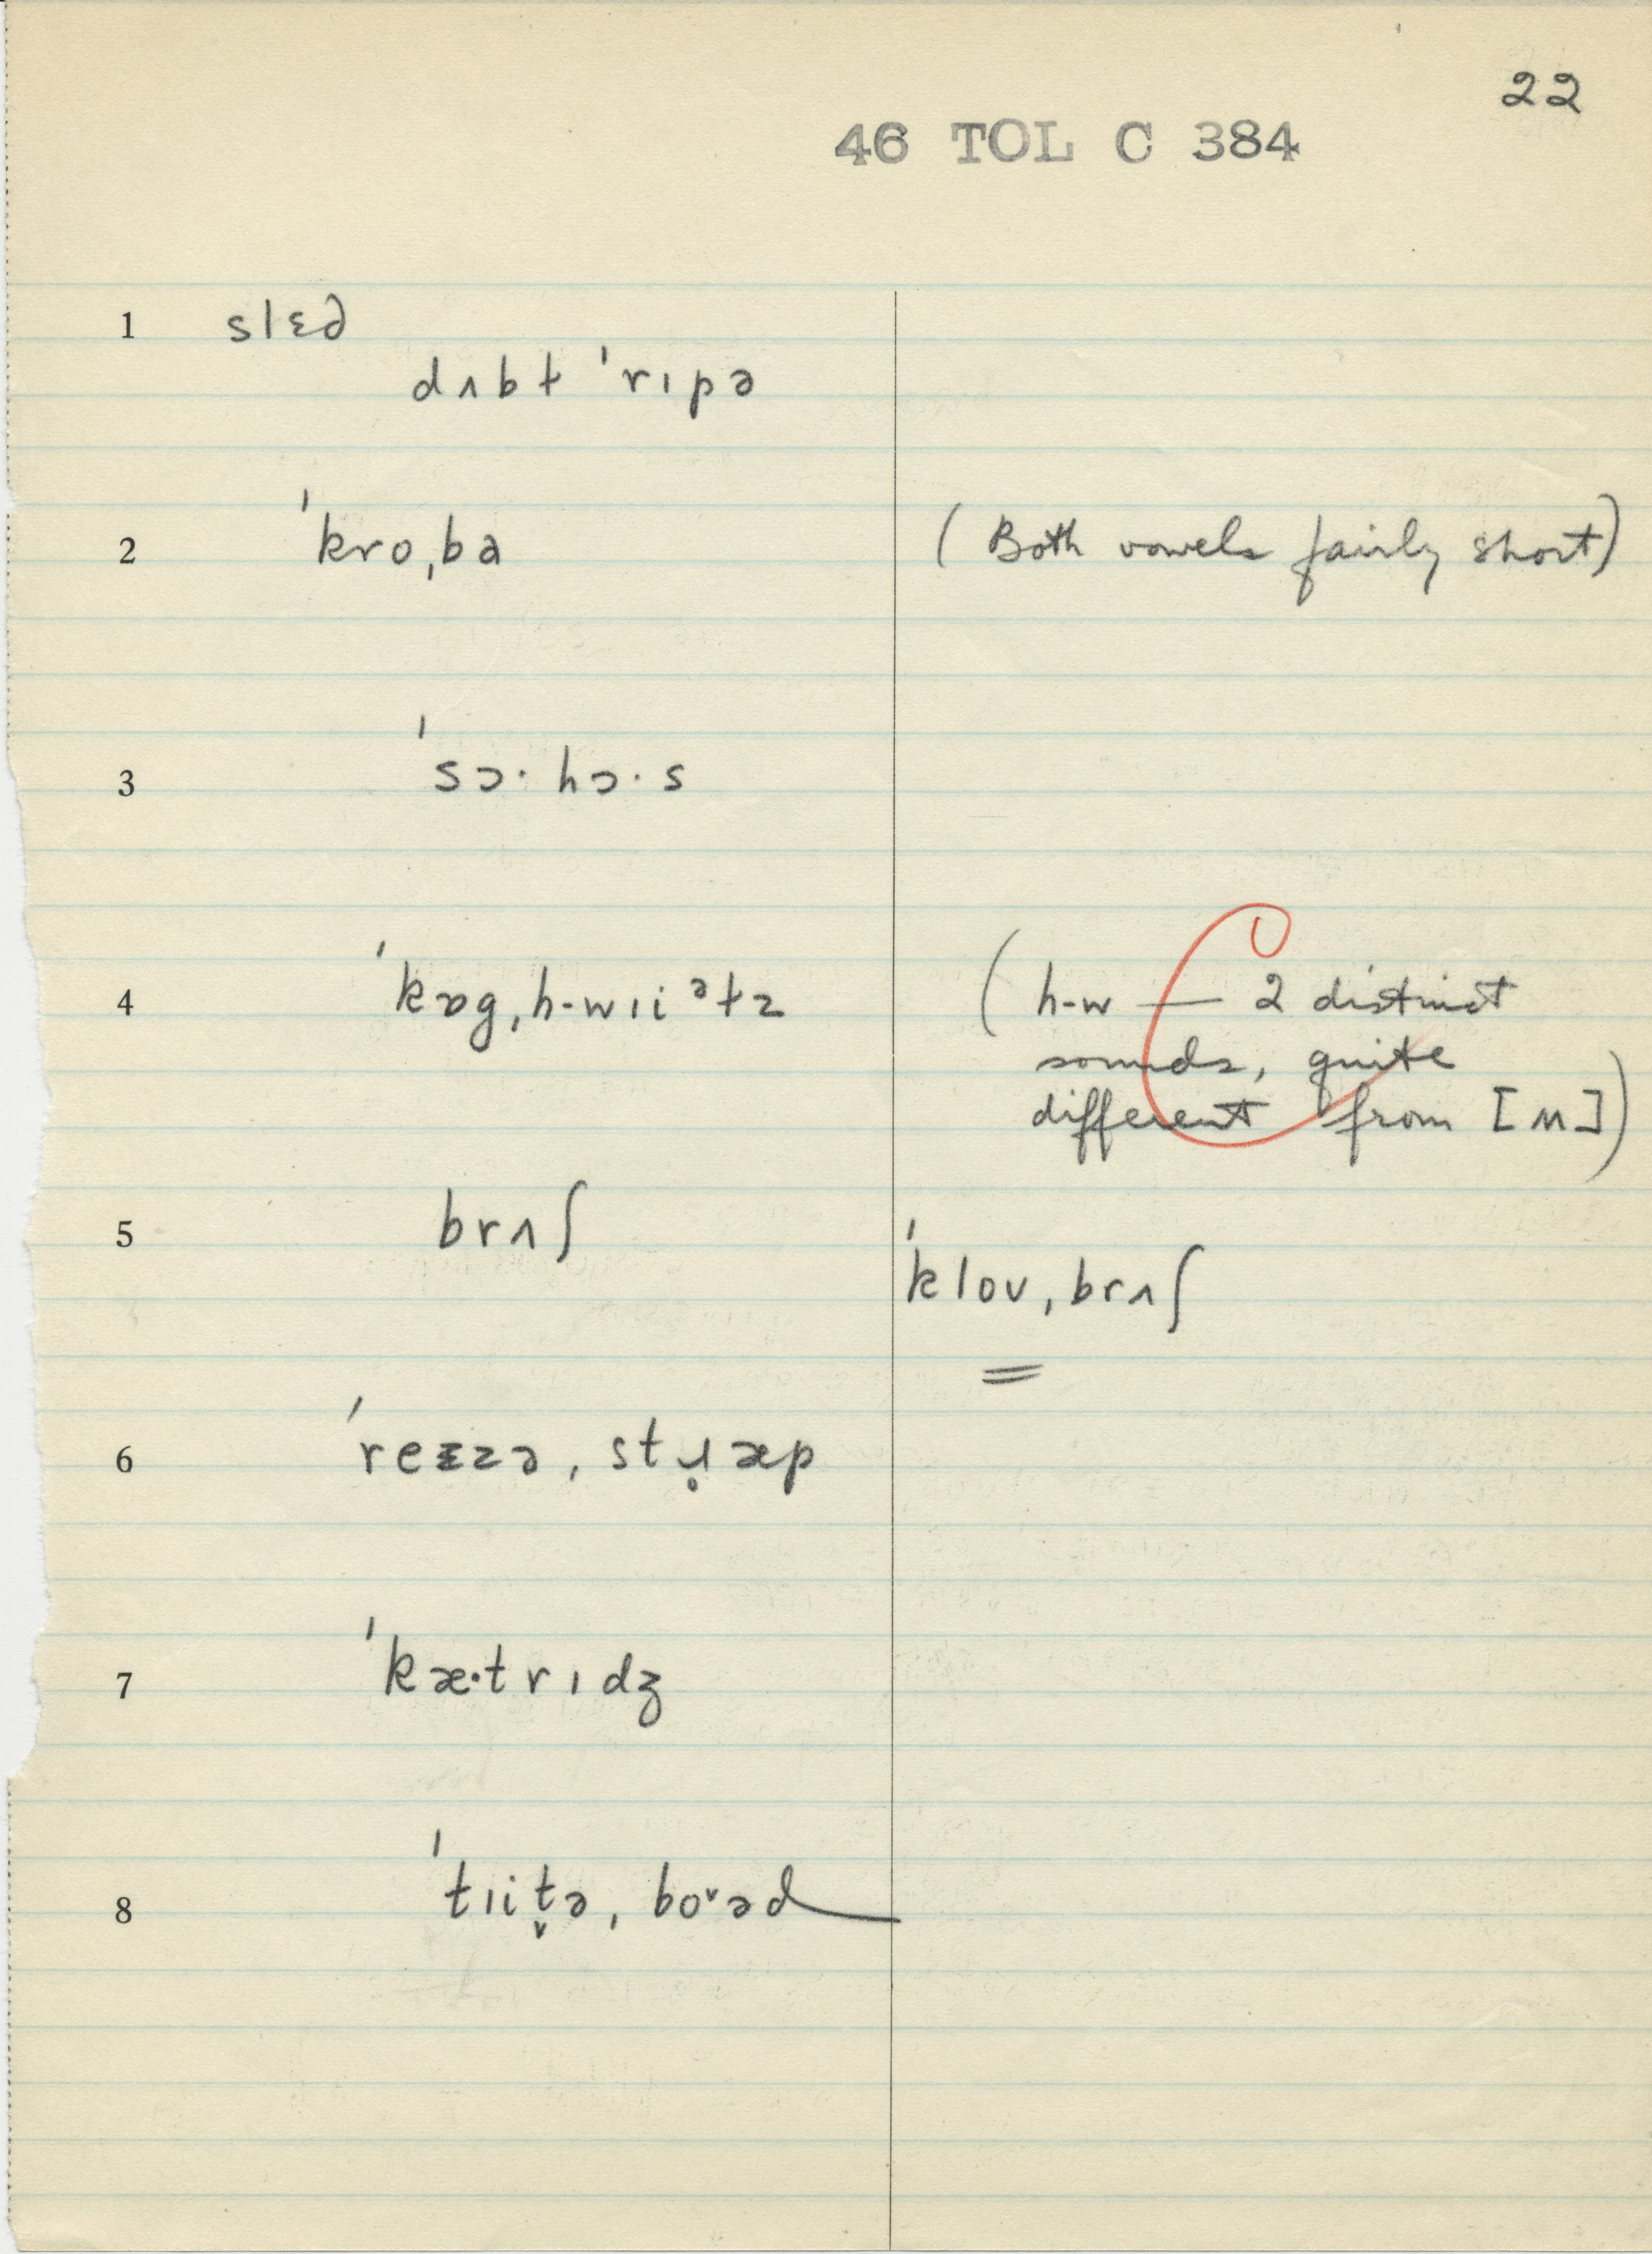 22
46 TOL C 384
1 slɛd
dʌbt ˈrɪpə
2 ˈkroˌba (Both vowels fairly short)
3 ˈsɔ·hɔ·s
4 ˈkɒgˌh-wɪiᵊtz (h-w — 2 distinct
sounds, quite
different from [ʍ])
5 brʌʃ
ˈkloʊˌbrʌʃ
=
6 ˈreɪzəˌstɹ̥æp
7 ˈkæ·trɪdʒ
8 ˈtɪit̬əˌboˇəd